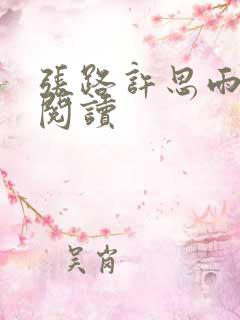 張路許思雨
閱讀
吴肖